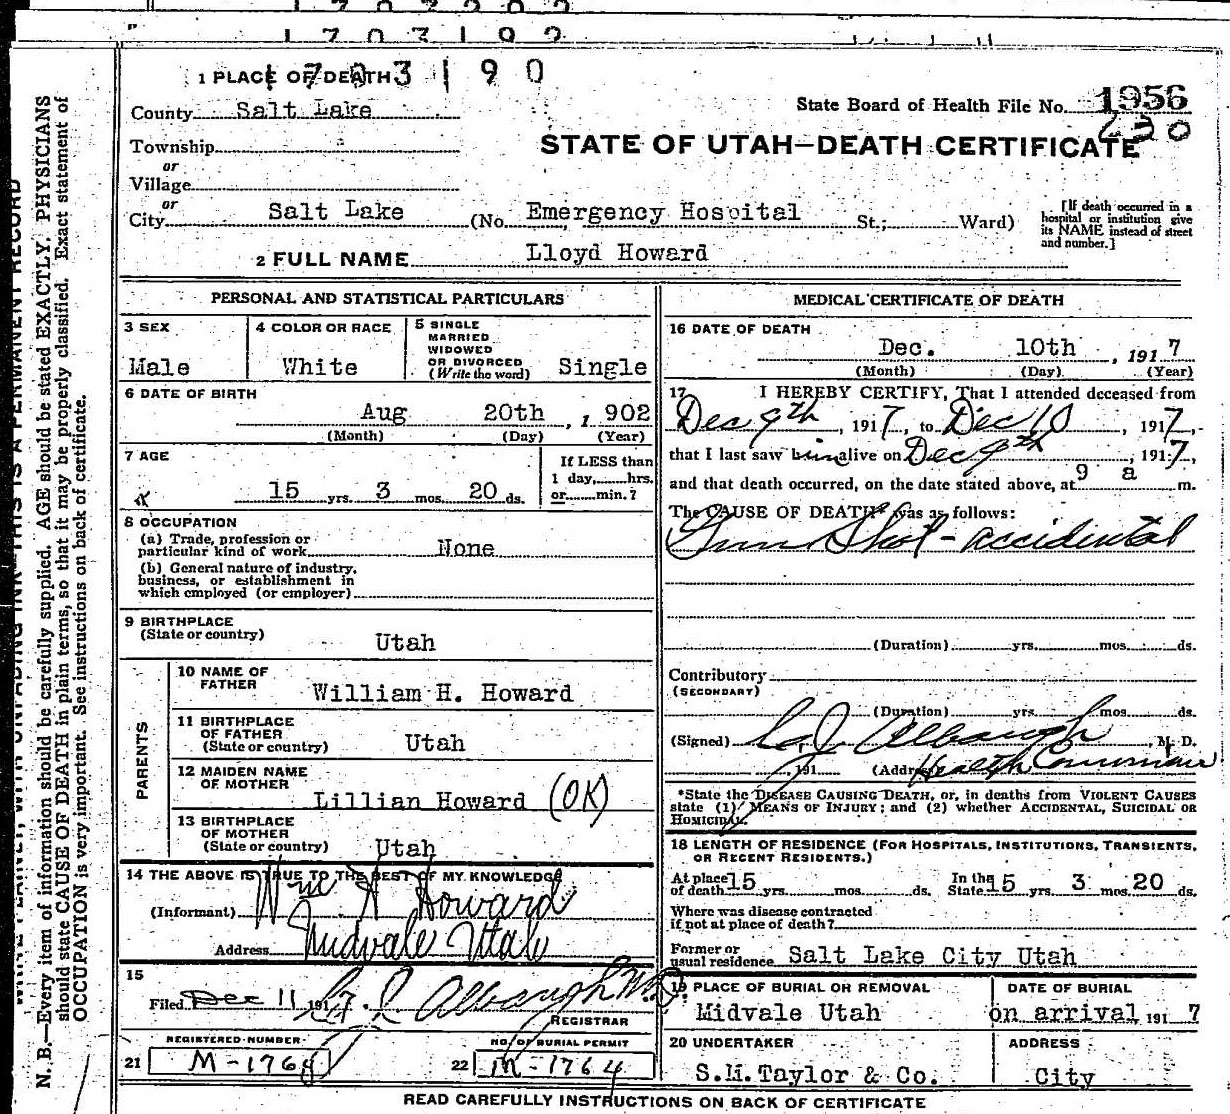 1703190
1 PLACE OF DEATH
County Salt Lake
State Board of Health File No. 1956
230
Township
STATE OF UTAH—DEATH CERTIFICATE
or
Village
or
City Salt Lake (No. Emergency Hospital St.; Ward)
[If death occurred in a
hospital or institution give
its NAME instead of street
and number.]
2 FULL NAME Lloyd Howard
PERSONAL AND STATISTICAL PARTICULARS
3 SEX
Male
4 COLOR OR RACE
White
5 SINGLE
MARRIED
WIDOWED
OR DIVORCED
(Write the word) Single
6 DATE OF BIRTH
Aug 20th, 1 902
(Month) (Day) (Year)
7 AGE
15 yrs. 3 mos. 20 ds.
If LESS than
1 day, hrs.
or min.?
8 OCCUPATION
(a) Trade, profession or
particular kind of work None
(b) General nature of industry,
business, or establishment in
which employed (or employer)
9 BIRTHPLACE
(State or country) Utah
PARENTS
10 NAME OF
FATHER William H. Howard
11 BIRTHPLACE
OF FATHER
(State or country) Utah
12 MAIDEN NAME
OF MOTHER
Lillian Howard (OK)
13 BIRTHPLACE
OF MOTHER
(State or country) Utah
14 THE ABOVE IS TRUE TO THE BEST OF MY KNOWLEDGE
(Informant) Wm H Howard
Address Midvale Utah
15
Filed Dec 11 1917 Albaugh M.D.
REGISTRAR
REGISTERED NUMBER
21 M-1764
NO. OF BURIAL PERMIT
22 M-1764
MEDICAL CERTIFICATE OF DEATH
16 DATE OF DEATH
Dec. 10th, 191 7
(Month) (Day) (Year)
17 I HEREBY CERTIFY, That I attended deceased from
Dec 9th, 1917, to Dec 10, 1917,
that I last saw him alive on Dec 9th, 1917,
and that death occurred, on the date stated above, at 9 a m.
The CAUSE OF DEATH* was as follows:
Gun Shot - accidental
(Duration) yrs. mos. ds.
Contributory
(SECONDARY)
(Duration) yrs. mos. ds.
(Signed) Albaugh, M. D.
, 191 (Address) Health
*State the DISEASE CAUSING DEATH, or, in deaths from VIOLENT CAUSES
state (1) MEANS OF INJURY; and (2) whether ACCIDENTAL, SUICIDAL OR
HOMICIDAL.
18 LENGTH OF RESIDENCE (FOR HOSPITALS, INSTITUTIONS, TRANSIENTS,
OR RECENT RESIDENTS.)
At place
of death 15 yrs. mos. ds. In the
State 15 yrs. 3 mos. 20 ds.
Where was disease contracted
if not at place of death?
Former or
usual residence Salt Lake City Utah
19 PLACE OF BURIAL OR REMOVAL
Midvale Utah
DATE OF BURIAL
on arrival, 191 7
20 UNDERTAKER
S.M.Taylor & Co.
ADDRESS
City
READ CAREFULLY INSTRUCTIONS ON BACK OF CERTIFICATE
N. B.—Every item of information should be carefully supplied. AGE should be stated EXACTLY. PHYSICIANS
should state CAUSE OF DEATH in plain terms, so that it may be properly classified. Exact statement of
OCCUPATION is very important. See instructions on back of certificate.